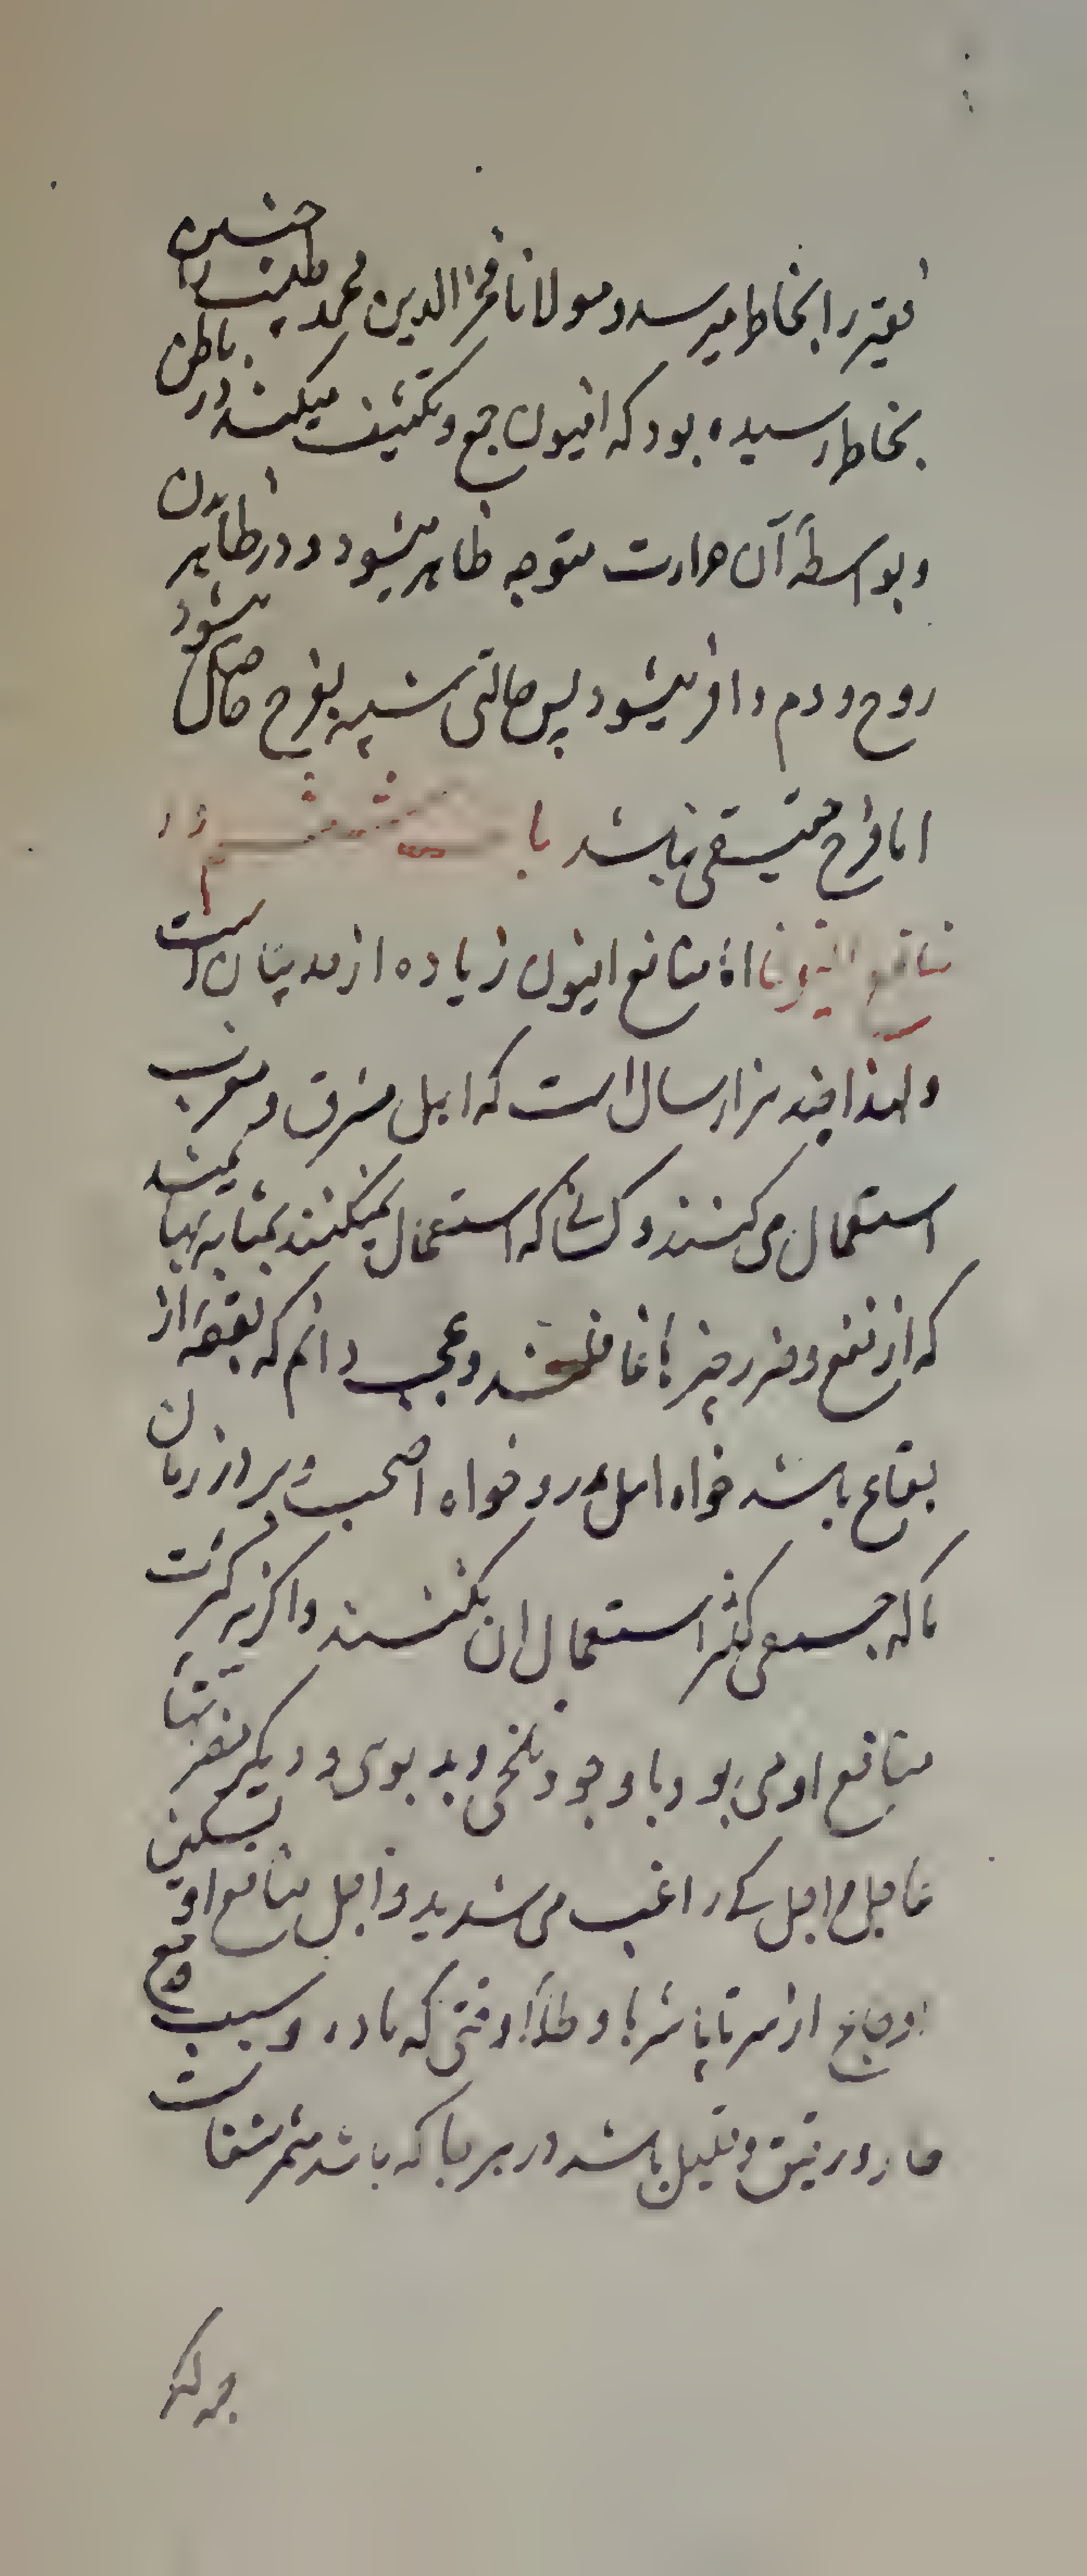 فقیر را بخاطر میرسد و مولانا فخر الدین محمد طبیب را چنین
بخاطر رسیده بود که افیون جمع و تکثیف میکند در باطن
و بواسطهٔ آن حرارت متوجه ظاهر میشود و در ظاهر بدن
روح و دم وافر میشود پس حالتی شبیه بفرح حاصل میشود
اما فرح حقیقی نباشد باب ششم در
منافع افیون اما منافع افیون زیاده از حد بیان است
و لهذا چند هزار سال است که اهل مشرق و مغرب
استعمال می کنند و کسانی که استعمال نمیکنند بمثابه بهایمند
که از نفع و ضرر چیزها غافلند و عجب دانم که بقعهٔ از
بقاع باشد خواه اهل مدر و خواه اصحاب وبر در زمان
ما که جمعی کثیر استعمال ان نکنند و اگر نه کثرت
منافع او می بود با وجود تلخی و بد بوی و دیگر مضرتها
عاجل و اجل کے راغب می شدید و اجل منافع او تسکین
اوجاع از سر تا پا شربا و طلاءً وقتی که ماده و سبب وجع
حار و رقیق و قلیل باشد در هر جا که باشد مثمر شفاست
چه لکر